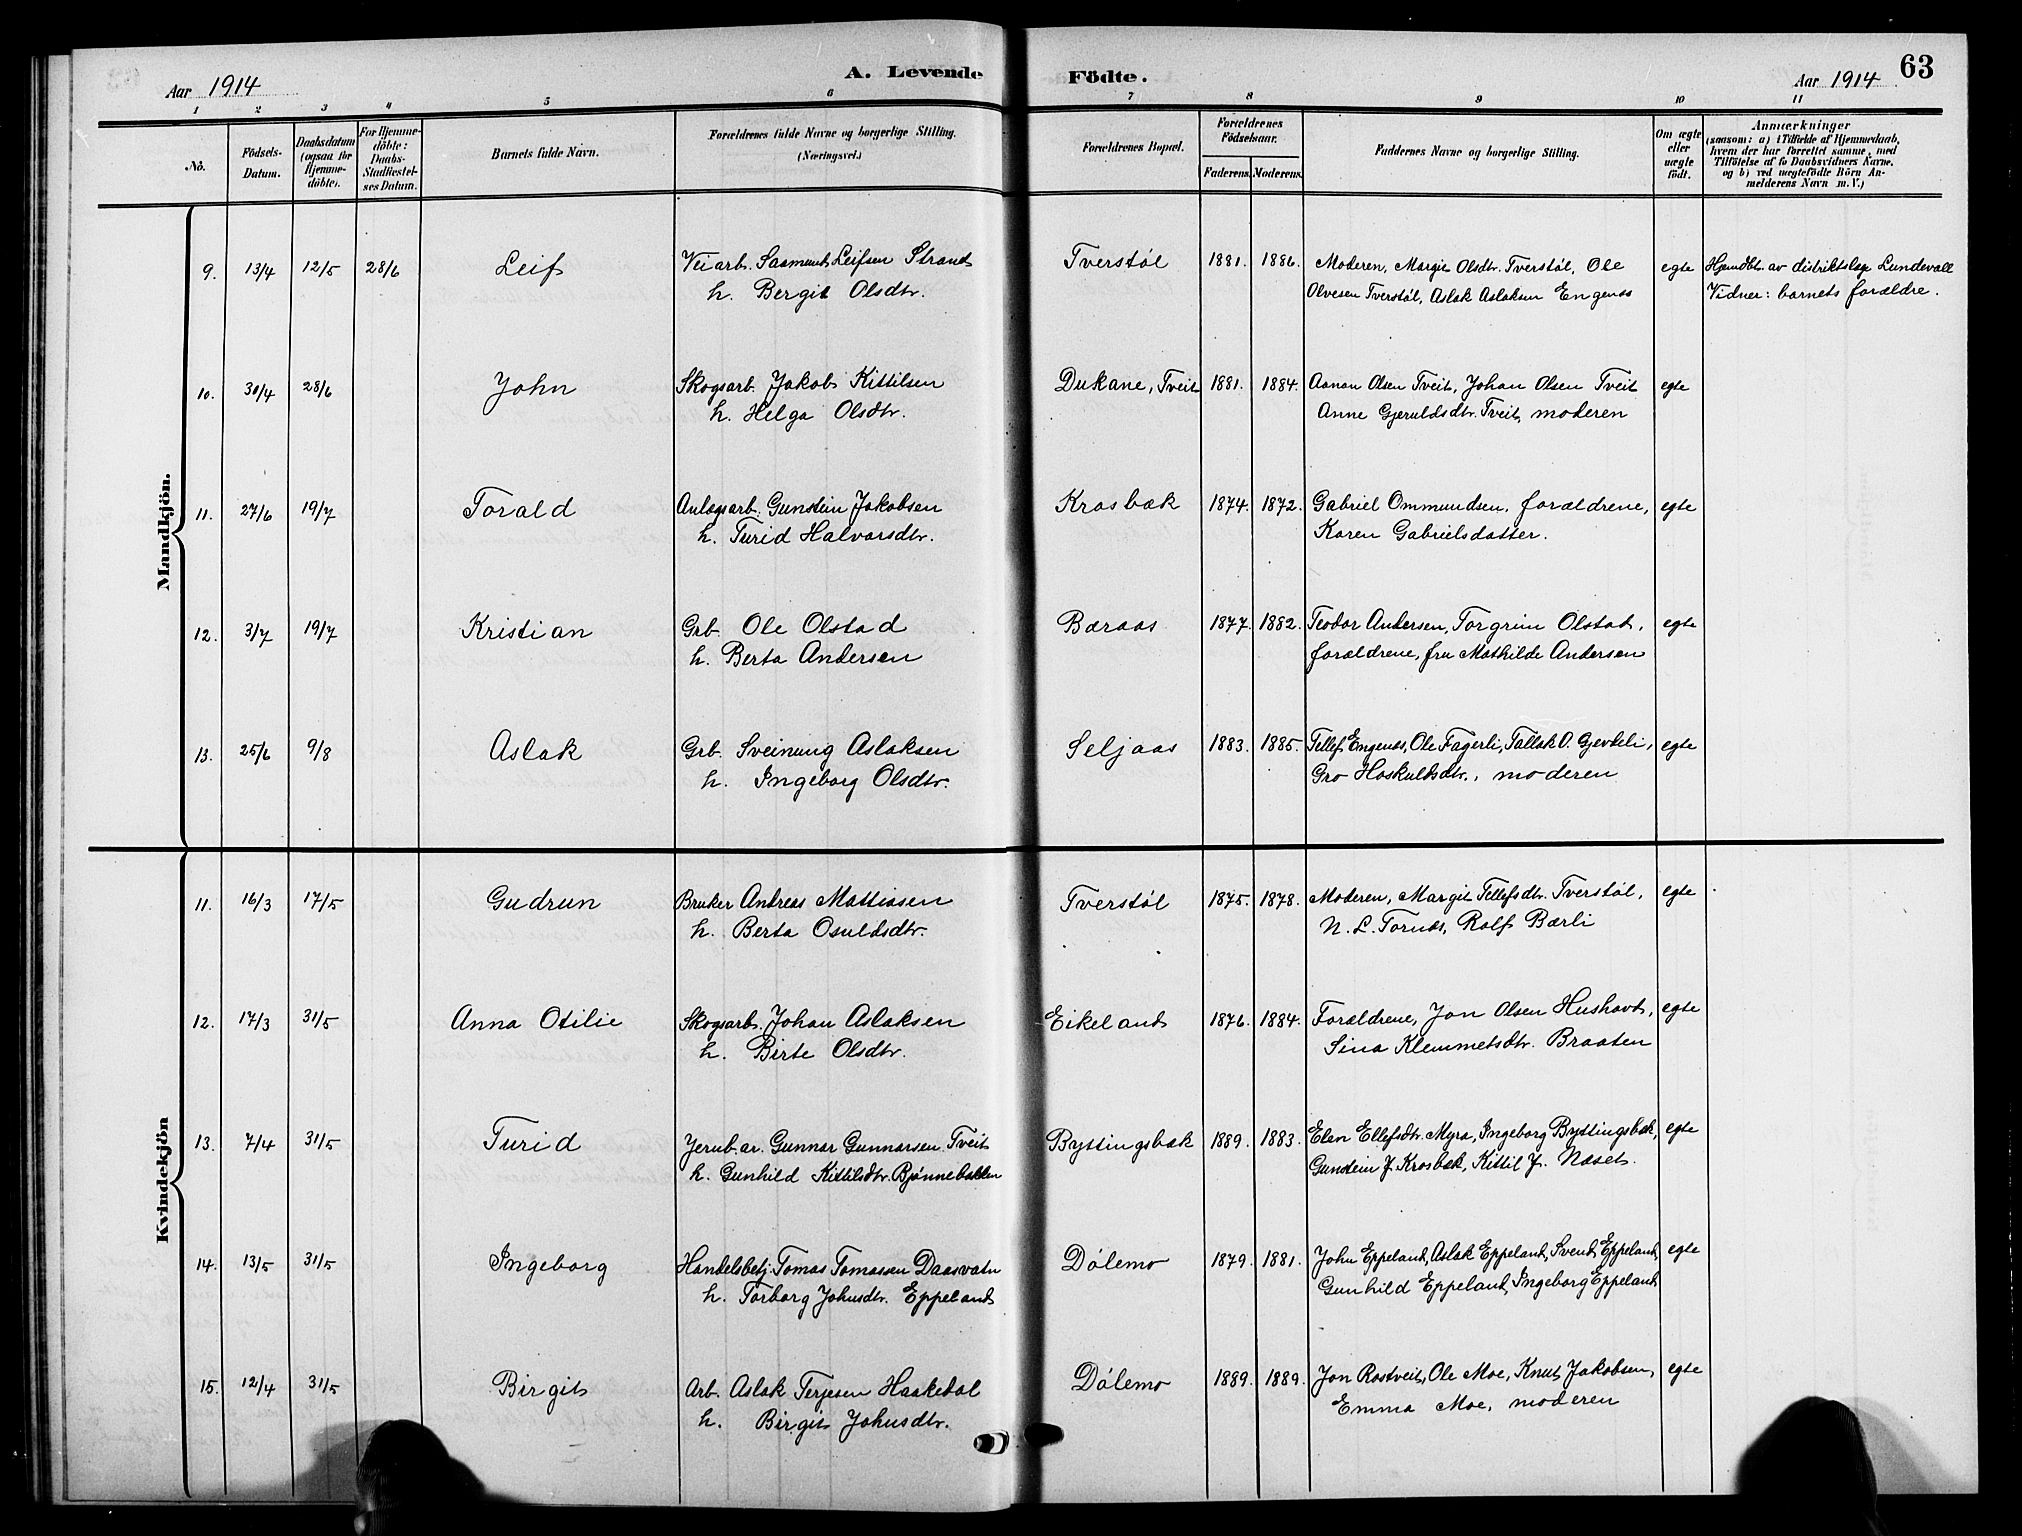 Aar 1914
A. Levende Födte.
Aar 1914. 63
1 2 3 4 5 6 7 8 9 10 11
No.
Födsels-
Datum.
Daabsdatum
(ogsaa for
Hjemme-
döbte).
For Hjemme-
döbte:
Daabs-
Stadfæstel-
ses Datum.
Barnets fulde Navn.
Forældrenes fulde Navne og borgerlige Stilling.
(Næringsvei.)
Forældrenes Bopæl.
Forældrenes
Födselsaar.
Faderens. Moderens.
Faddernes Navne og borgerlige Stilling.
Om ægte
eller
uægte
födt.
Anmærkninger
(saasom: a) i Tilfælde af Hjemmedaab,
hvem der har forrettet samme, med
Tilföielse af to Daabsvidners Navne.
og b) ved uægtefödte Börn An-
melderens Navn m. V.)
Mandkjön.
9. 13/4 12/5 28/6 Leif Veiarb. Saamund Leifsen Strand Tverstøl 1881. 1886. Moderen, Margit Olsdtr. Tverstøl, Ole egte Hjemdbt. av distriktslæge Lundevall
h. Bergit Olsdtr. Olvesen Tverstøl, Aslak Aslaksen Engenes Vidner: barnets forældre.
10. 30/4 28/6 John Skogsarb. Jakob Kittilsen Dukane, Tveit 1881. 1884. Aanon Olsen Tveit, Johan Olsen Tveit egte
h. Helga Olsdtr. Anne Gjeruldsdtr. Tveit, moderen
11. 27/6 19/7 Torald Anlægsarb. Gunstein Jakobsen Krosbæk 1874. 1872. Gabriel Ommundsen, forældrene, egte
h. Turid Halvorsdtr. Karen Gabrielsdatter.
12. 3/7 19/7 Kristian Grb. Ole Olstad Bæraas 1877. 1882. Teodor Andersen, Torgrim Olstad, egte
h. Berta Andersen forældrene, fru Mathilde Andersen
13. 25/6 9/8 Aslak Grb. Sveinung Aslaksen Seljaas 1883. 1885. Tellef Engenes, Ole Fagerli, Tallak O. Gjevdeli, egte
h. Ingeborg Olsdtr. Gro Hoskuldsdtr., moderen
Kvindekjön
11. 16/3 17/5 Gudrun Bruker Andreas Mattiasen Tverstøl 1875. 1878. Moderen, Margit Tellefsdtr. Tverstøl, egte
h. Berta Osuldsdtr. N. L. Tornes, Rolf Bærli
12. 17/3 31/5 Anna Otilie Skogsarb. Johan Aslaksen Eikeland 1876. 1884. Forældrene, Jon Olsen Hushovd, egte
h. Birte Olsdtr. Sina Klemmetsdtr. Braaten
13. 7/4 31/5 Turid Jernb.ar. Gunnar Gunnarsen Tveit Byttingsbæk 1889. 1883. Elen Ellefsdtr. Myra, Ingeborg Byttingsbæk, egte
h. Gunhild Kittilsdtr. Bjønnebakken Gunstein J. Krosbæk, Kittil J. Næset.
14. 13/5 31/5 Ingeborg Handelsbetj. Tomas Tomassen Daasvatn Dølemo 1879. 1881. John Eppeland, Aslak Eppeland, Svend Eppeland, egte
h. Torborg Johnsdtr. Eppeland Gunhild Eppeland, Ingeborg Eppeland
15. 12/4 31/5 Birgit Arb. Aslak Terjesen Haakedal Dølemo 1889. 1889. Jon Rostveit, Ole Moe, Knut Jakobsen, egte
h. Birgit Johnsdtr. Emma Moe, moderen